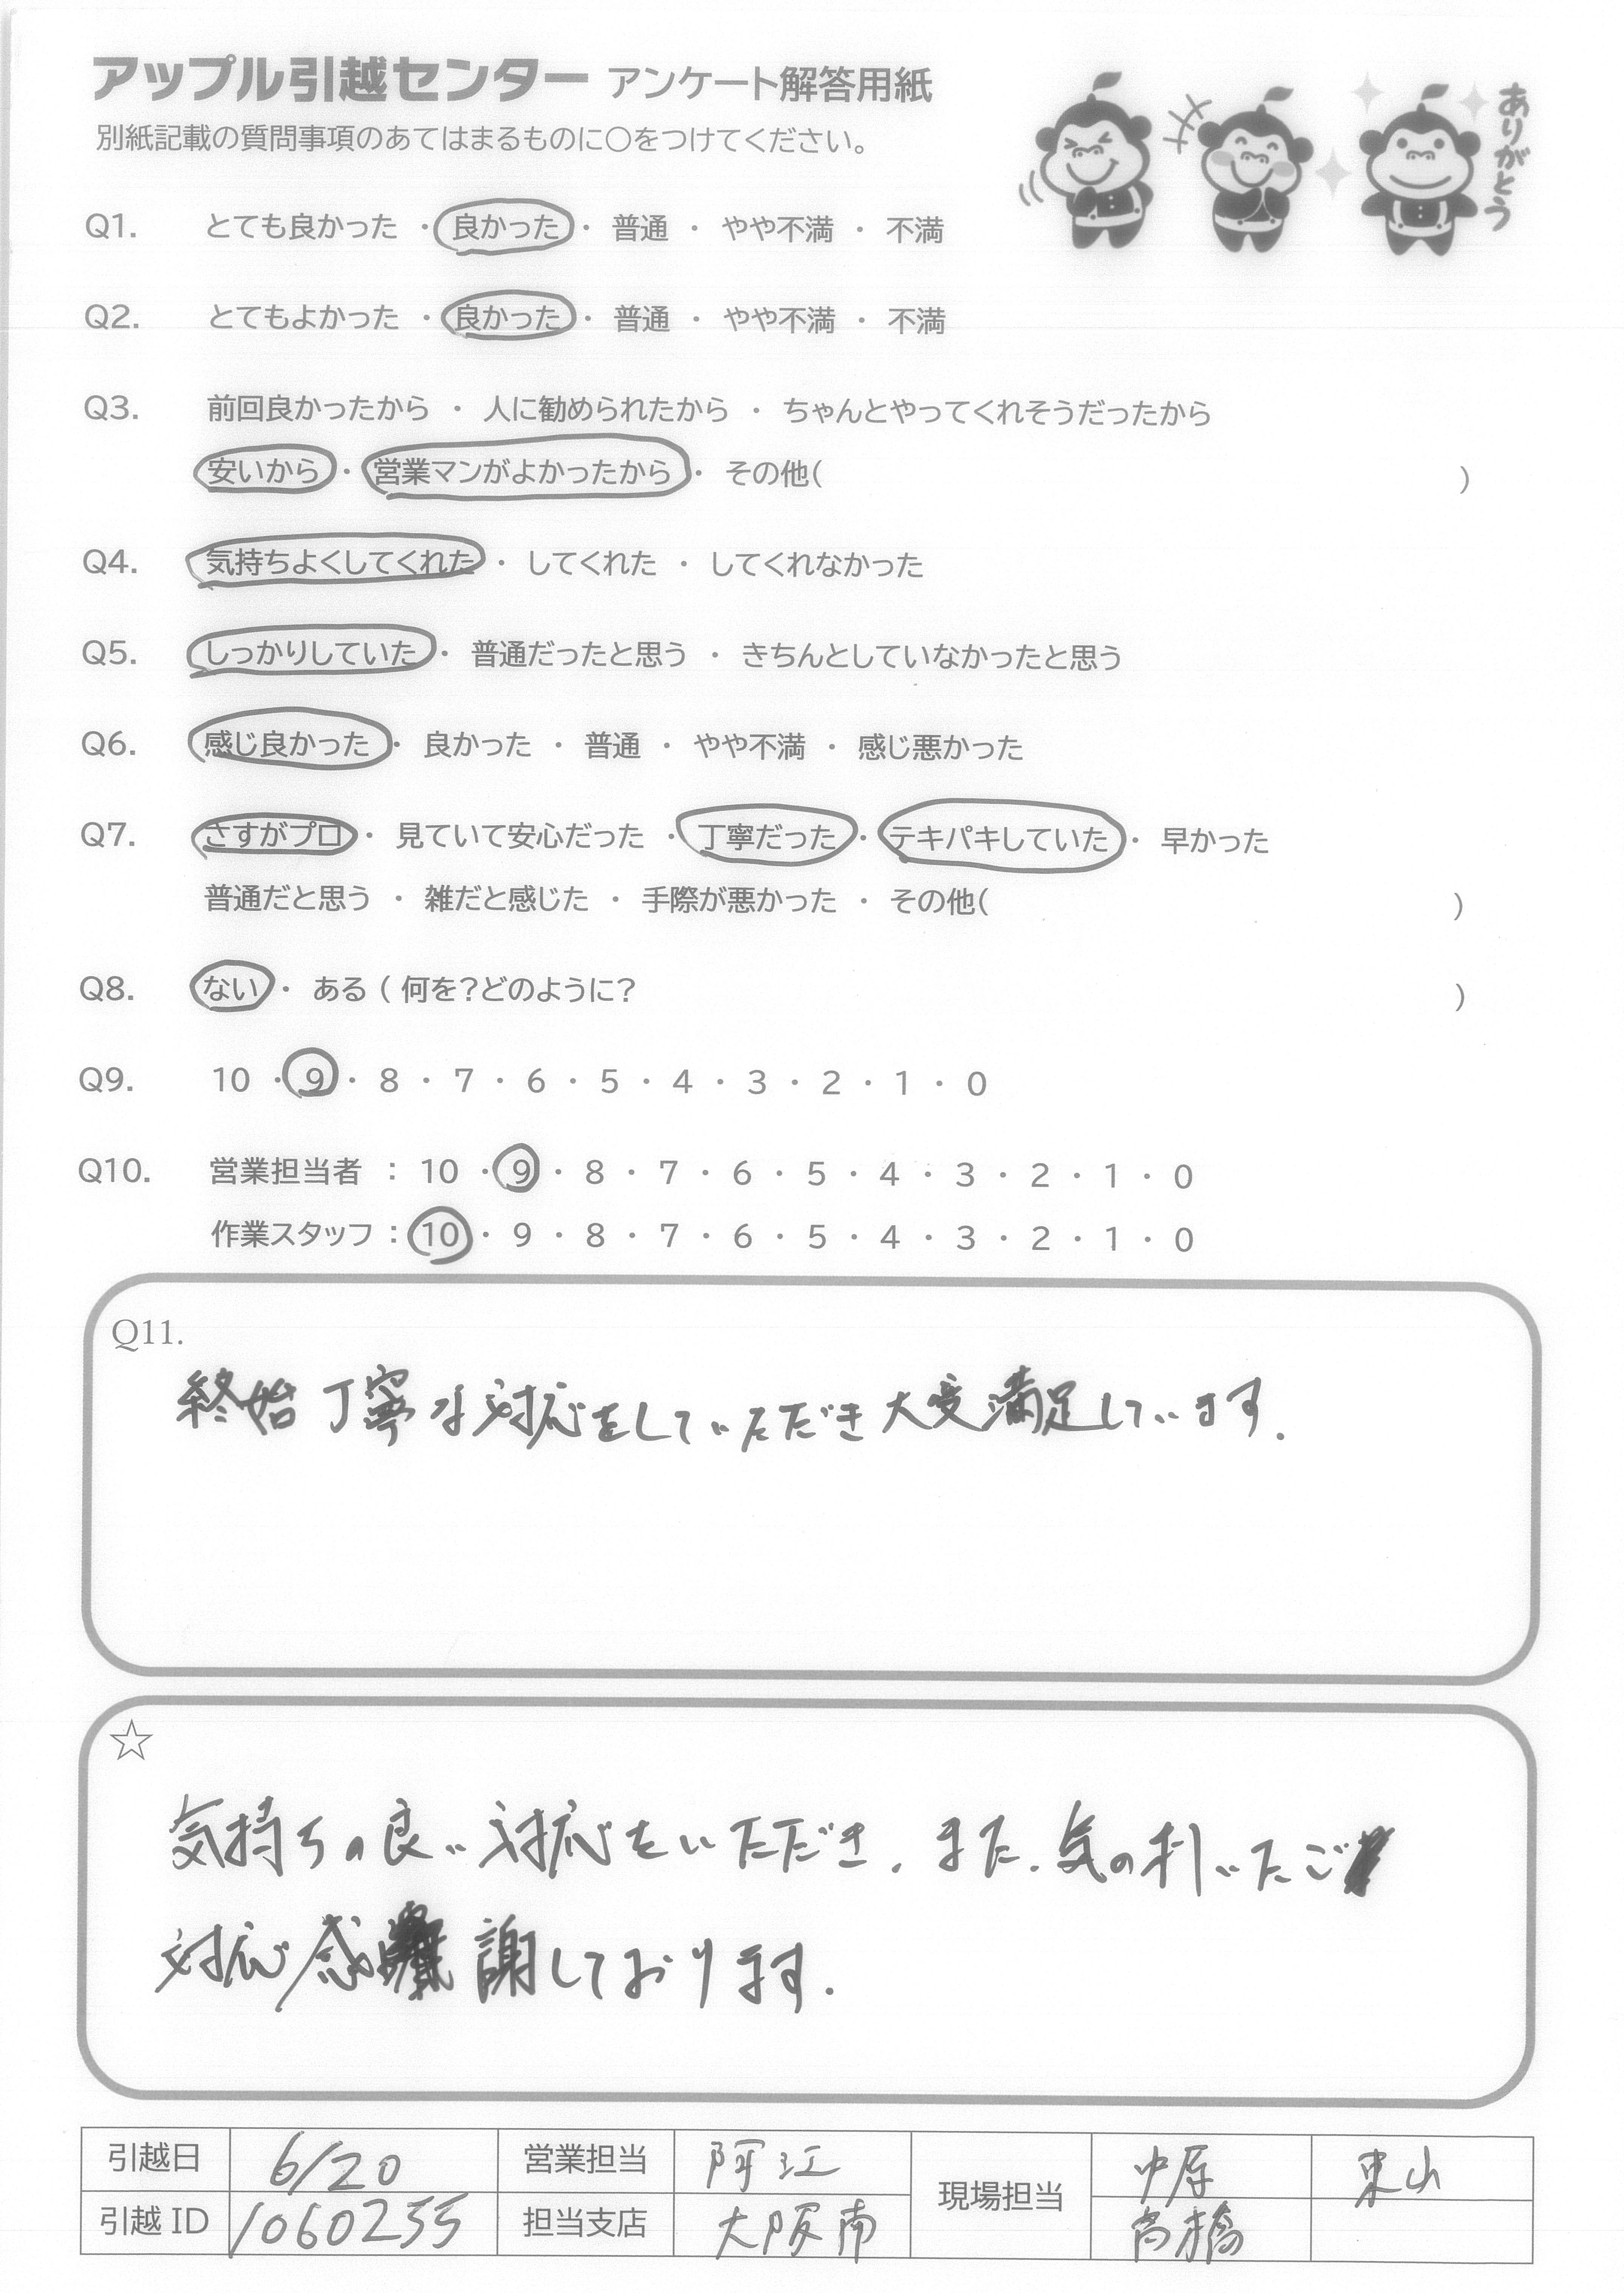 アップル引越センター アンケート解答用紙
別紙記載の質問事項のあてはまるものに○をつけてください。
ありがとう
Q1. とても良かった ・ 良かった ・ 普通 ・ やや不満 ・ 不満
Q2. とてもよかった ・ 良かった ・ 普通 ・ やや不満 ・ 不満
Q3. 前回良かったから ・ 人に勧められたから ・ ちゃんとやってくれそうだったから
安いから ・ 営業マンがよかったから ・ その他( )
Q4. 気持ちよくしてくれた ・ してくれた ・ してくれなかった
Q5. しっかりしていた ・ 普通だったと思う ・ きちんとしていなかったと思う
Q6. 感じ良かった ・ 良かった ・ 普通 ・ やや不満 ・ 感じ悪かった
Q7. さすがプロ ・ 見ていて安心だった ・ 丁寧だった ・ テキパキしていた ・ 早かった
普通だと思う ・ 雑だと感じた ・ 手際が悪かった ・ その他( )
Q8. ない ・ ある ( 何を?どのように? )
Q9. 10 ・ 9 ・ 8 ・ 7 ・ 6 ・ 5 ・ 4 ・ 3 ・ 2 ・ 1 ・ 0
Q10. 営業担当者 : 10 ・ 9 ・ 8 ・ 7 ・ 6 ・ 5 ・ 4 ・ 3 ・ 2 ・ 1 ・ 0
作業スタッフ : 10 ・ 9 ・ 8 ・ 7 ・ 6 ・ 5 ・ 4 ・ 3 ・ 2 ・ 1 ・ 0
Q11.
終始丁寧な対応をしていただき大変満足しています.
☆
気持ちの良い対応をいただき、また、気の利いたご
対応感謝しております.
引越日 6/20 営業担当 阿江 現場担当 中原 東山
引越 ID 1060255 担当支店 大阪南 高橋